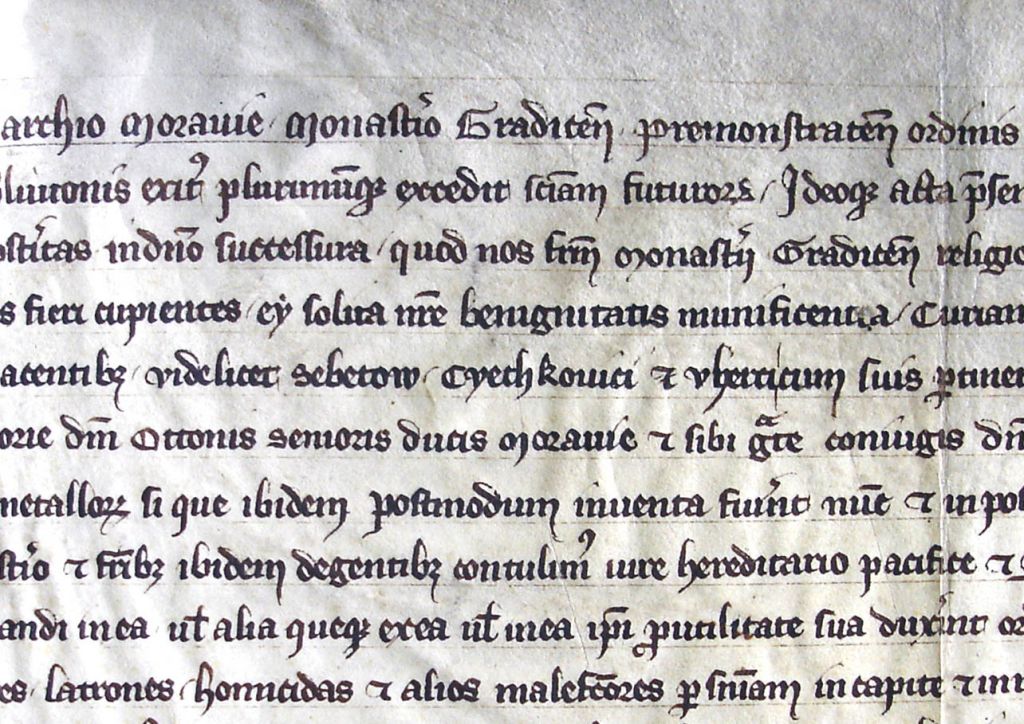 archio Moravie Monast'io Gradicen̄ Premonstraten̄ ordinis
exit⁹ plurimūq₃ excedit sciam̄ futuroꝝ Ideoq₃ acta p̄sen
st'itas in dn̄o successura quod nos frm̄ Monast'ij Gradicen̄ religio
s fieri cupientes ex solita nr̄e benignitatis munificentia Curiam
acentibꝫ videlicet Sebetow Cyechkovici ⁊ vherticium suis ꝑtinen
orie dn̄i Ottonis senioris ducis Moravie ⁊ sibi gͣte coniugis dn̄
metalloꝝ si que ibidem postmodum inventa fu'int nūc ⁊ in pos
st'io ⁊ fr̄ibꝫ ibidem degentibꝫ contulim⁹ iure hereditario pacifice ⁊
andi in ea ul̄ alia queq₃ ex ea ul̄ in ea ip̄i ꝓ utilitate sua dux'int or
es latrones homicidas ⁊ alios malefc̄ores ꝑ sn̄iam in capite ⁊